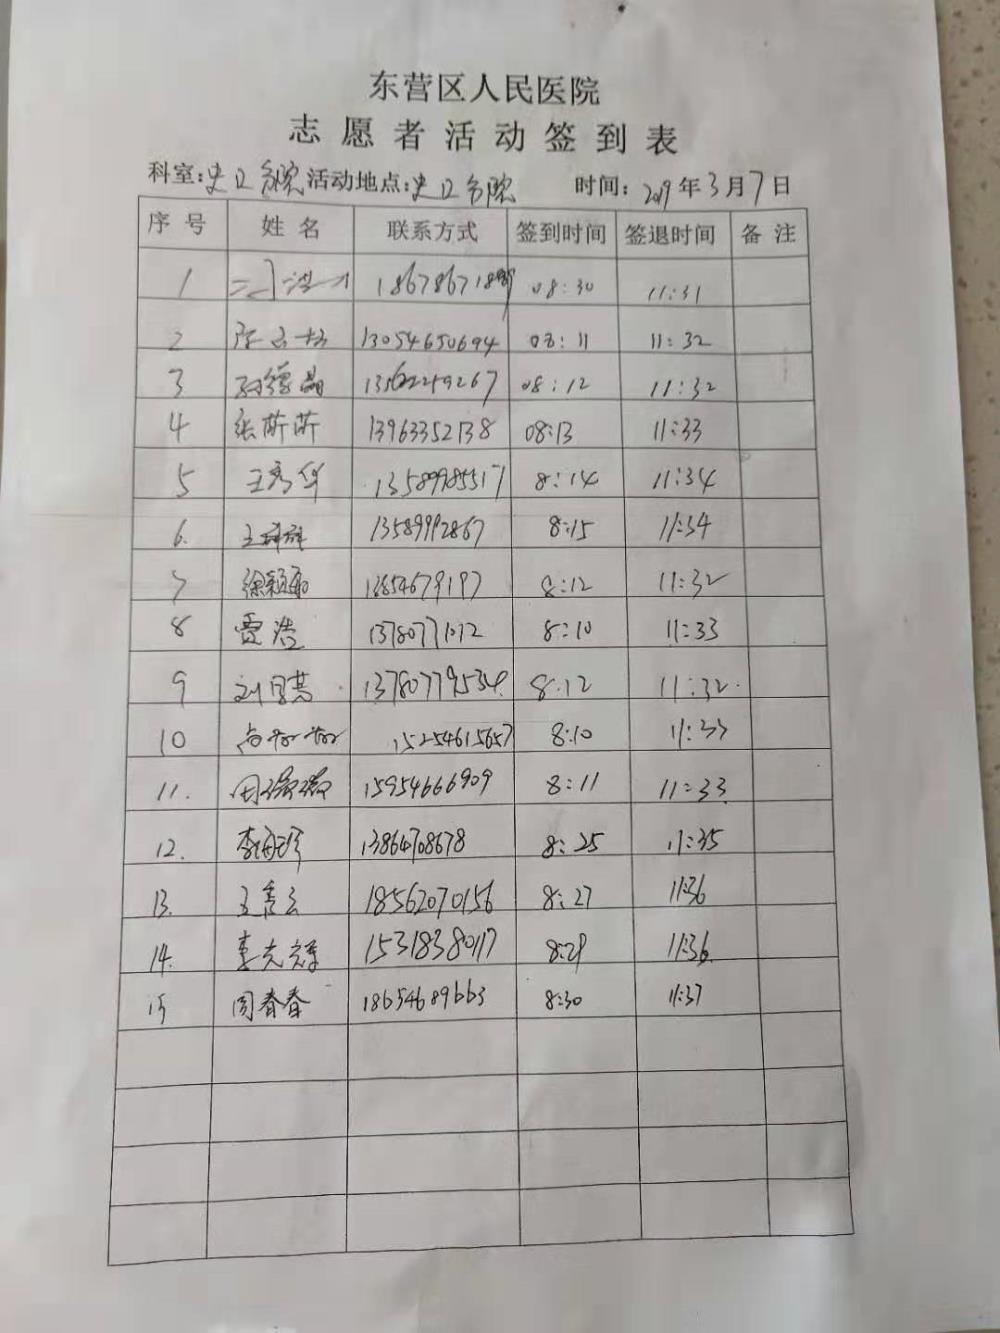 东营区人民医院
志愿者活动签到表
科室:史口分院 活动地点:史口分院 时间: 2019年3月7日
序号 姓名 联系方式 签到时间 签退时间 备注
1 08:30 11:31
2 13054650694 08:11 11:32
3 孙德晶 13562259267 08:12 11:32
4 张苂苂 13963352138 08:13 11:33
5 王秀华 13589985517 8:14 11:34
6. 王群群 13589992867 8:15 11:34
7 徐颖取 8:12 11:32
8 贾浩 8:10 11:33
9 刘曰英 13780779534 8:12 11:32
10 尚好好 15254615657 8:10 11:33
11. 周微微 15954666909 8:11 11:33
12. 李海珍 13864708678 8:25 11:35
13. 王秀云 18562070156 8:27 11:36
14. 李光辉 15318380117 8:29 11:36
15 周春春 18654689663 8:30 11:37